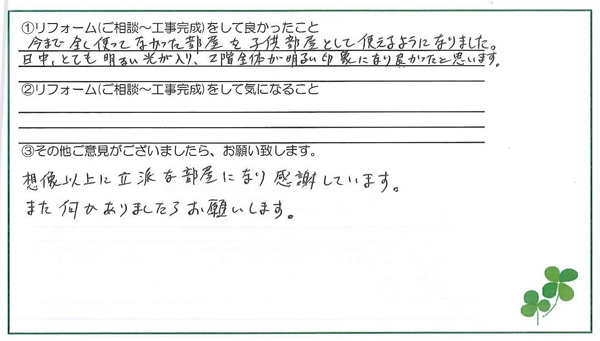 ①リフォーム(ご相談～工事完成)をして良かったこと
今まで全く使ってなかった部屋を子供部屋として使えるようになりました。
日中、とても明るい光が入り、2階全体が明るい印象になり良かったと思います。
②リフォーム(ご相談～工事完成)をして気になること
③その他ご意見がございましたら、お願い致します。
想像以上に立派な部屋になり感謝しています。
また何かありましたらお願いします。